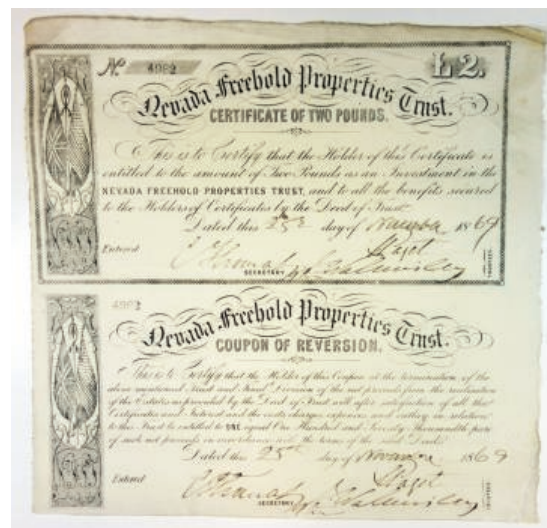 No. 4982
£2.
Nevada Freehold Properties Trust.
CERTIFICATE OF TWO POUNDS.
This is to Certify that the Holder of this Certificate is
entitled to the amount of Two Pounds as an Investment in the
NEVADA FREEHOLD PROPERTIES TRUST, and to all the benefits secured
to the Holders of Certificates by the Deed of Trust.
Dated this 25th day of November 1869
Entered
SECRETARY
TRUSTEES.
4982
Nevada Freehold Properties Trust.
COUPON OF REVERSION.
This is to Certify that the Holder of this Coupon at the termination of the
above mentioned Trust and Final Division of the net proceeds from the realization
of the Estates as provided by the Deed of Trust will after satisfaction of all the
Certificates and Interest and the costs charges expenses and outlay in relation
to this Trust be entitled to ONE equal One Hundred and Seventy Thousandth part
of such net proceeds in accordance with the terms of the said Deed.
Dated this 25th day of November 1869
Entered
SECRETARY
TRUSTEES